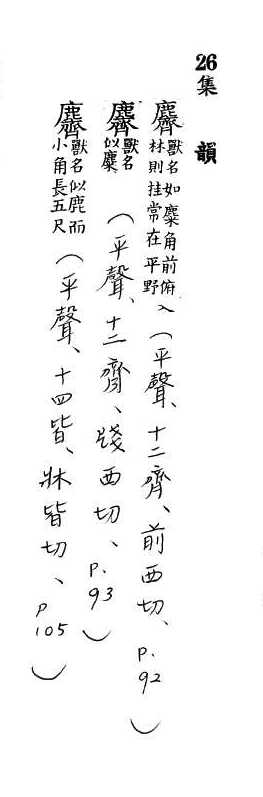 26 集韻
麡 獸名如麋角前俯入林則挂常在平野（平聲、十二齊、前西切、P.92）
麡 獸名似麋（平聲、十二齊、牋西切、P.93）
麡 獸名似鹿而小角長五尺（平聲、十四皆、牀皆切、P105）